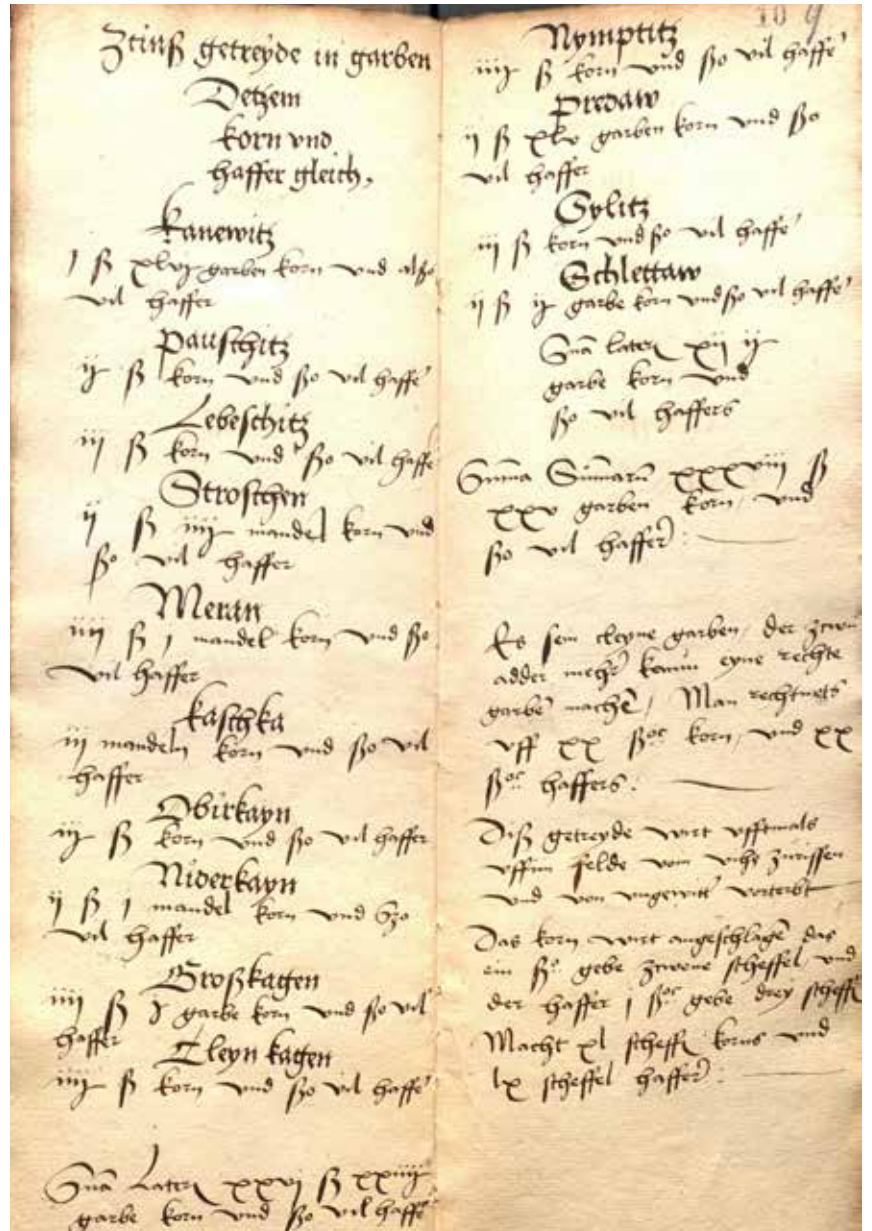 Ztinß getreyde in garben
Detzem
korn vnd
haffer gleich,
Kanewitz
j ß xlvj garben korn vnd also
vil haffer
Pauschitz
ij ß korn vnd ßo vil haffe
Lebeschitz
iij ß korn vnd ßo vil haffe
Stroschen
ij ß iiij mandel korn vnd
ßo vil haffer
Meran
iiij ß j mandel korn vnd ßo
vil haffer
Kaschka
iij mandeln korn vnd ßo vil
haffer
Obirkayn
iij ß korn vnd ßo vil haffer
Niderkayn
ij ß j mandel korn vnd ßzo
vil haffer
Großkagen
iiij ß garbe korn vnd ßo vil
haffer
Cleyn kagen
iiij ß korn vnd ßo vil haffe
Sua Laterꝭ xxvj ß xxiiij
garbe korn vnd ßo vil haffe
Nymptitz
iiij ß korn vnd ßo vil haffe
Predaw
ij ß xlv garben korn vnd ßo
vil haffer
Sylitz
iij ß korn vnd ßo vil haffe
Schlettaw
ij ß ij garbe korn vnd ßo vil haffe
Sua Laterꝭ xij ij
garbe korn vnd
ßo vil haffers
Suma Sumaru xxxviij ß
xxv garben korn, vnd
ßo vil haffer
Es sein cleyne garben, der zwu
adder mehr kaum eyne rechte
garbe mache, Man rechnets
vff xx ßoc korn, vnd xx
ßoc haffers.
Diß getreyde wirt vfftmals
vffim felde vom vihe zurissen
vnd von vngewitt vorterbt
Das korn wirt angeschlage das
ein ßo gebe zwene scheffel vnd
der haffer j ßoc gebe drey scheff
Macht xl scheff korns vnd
lx scheffel haffer